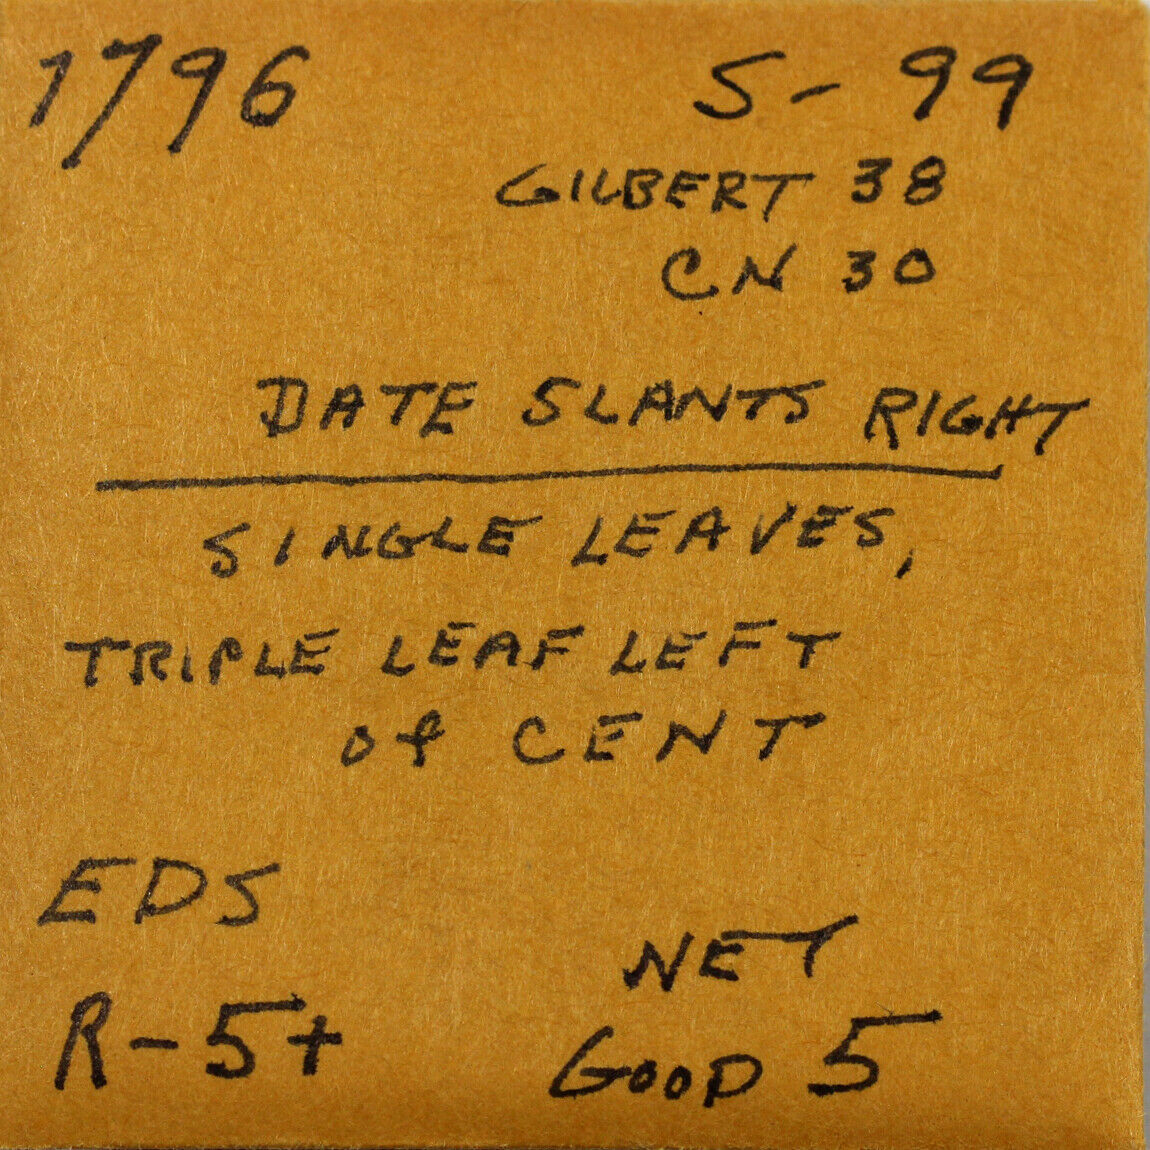 1796 S-99
GILBERT 38
CN 30
DATE SLANTS RIGHT
SINGLE LEAVES,
TRIPLE LEAF LEFT
of CENT
EDS
NET
R-5+ GOOD 5